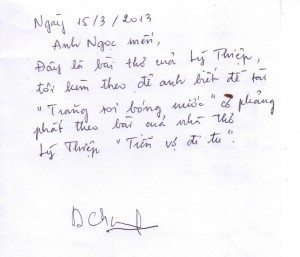 Ngày 15/3/2013
Anh Ngọc mến,
Đây là bài thơ của Lý Thiệp,
tôi kèm theo để anh biết đề tài
"Trăng soi bóng nước" có phảng
phất theo bài của nhà thơ
Lý Thiệp "Tiễn vợ đi tu".